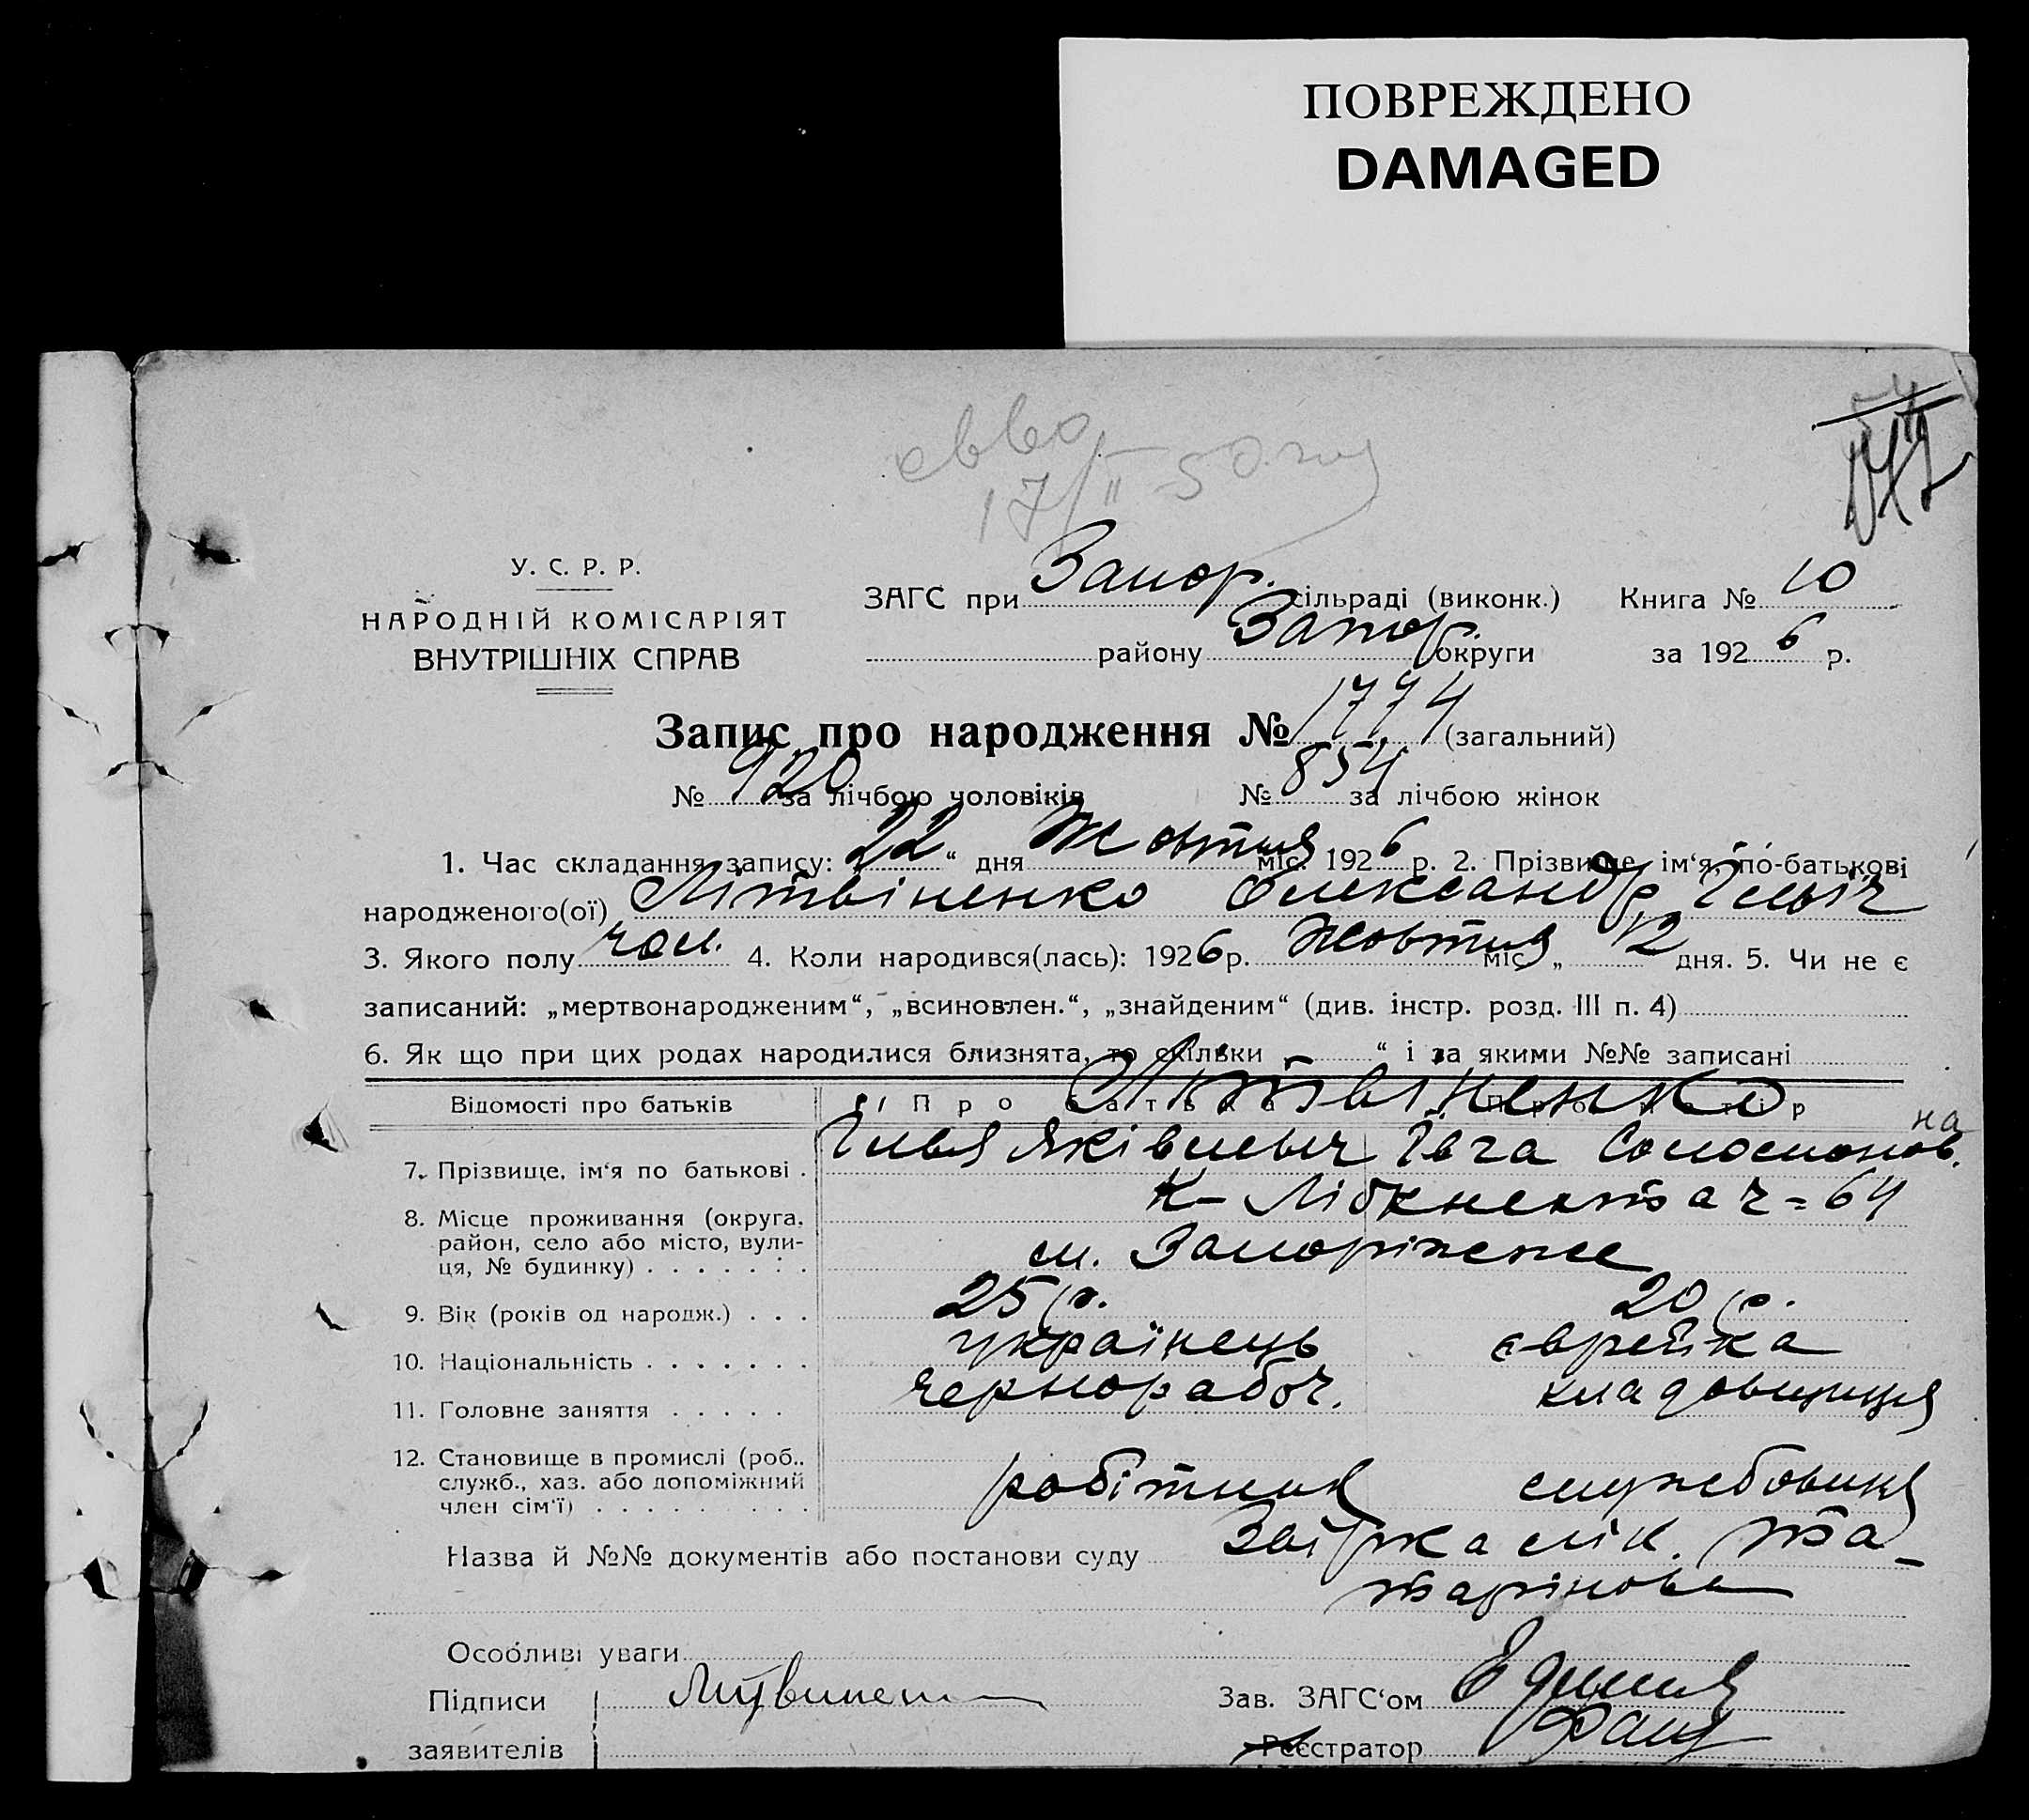 ПОВРЕЖДЕНО
DAMAGED
17/II-50
У. С. Р. Р.
НАРОДНІЙ КОМІСАРІЯТ
ВНУТРІШНІХ СПРАВ
ЗАГС при Запор. сільраді (виконк.) Книга № 10
району Запор. округи за 1926 р.
Запис про народження № 1774 (загальний)
№ 920 за лічбою чоловіків № 854 за лічбою жінок
1. Час складання запису: 22 “ дня Жовтня міс. 1926 р. 2. Прізвище, ім‘я, по-батькові
народженого(ої) Літвіненко Олександр Ільіч
3. Якого полу чол. 4. Коли народився(лась): 1926 р. Жовтня міс. „ 12 дня. 5. Чи не є
записаний: „мертвонародженим“, „всиновлен.“, „знайденим“ (див. інстр. розд. III п. 4)
6. Як що при цих родах народилися близнята, то скільки „ “ і за якими №№ записані
Відомості про батьків Про батька Про матір
Літвіненко
7. Прізвище, ім‘я по батькові . Ілья Яківлевич Ївга Соломонов. на
8. Місце проживання (округа, К-Лібкнехта ч=64
район, село або місто, вули-
ця, № будинку) . . . . . . . м. Запоріжже
9. Вік (років од народж.) . . . 25 р. 20 р.
10. Національність . . . . . . . українець єврейка
11. Головне заняття . . . . . чернорабоч. кладовщиця
12. Становище в промислі (роб.,
служб., хаз. або допоміжний робітник службовиця
член сім‘ї) . . . . . . . . .
Назва й №№ документів або постанови суду лік. Та-
тарінова
Особливі уваги
Підписи Литвинен Зав. ЗАГС‘ом
заявителів Реєстратор